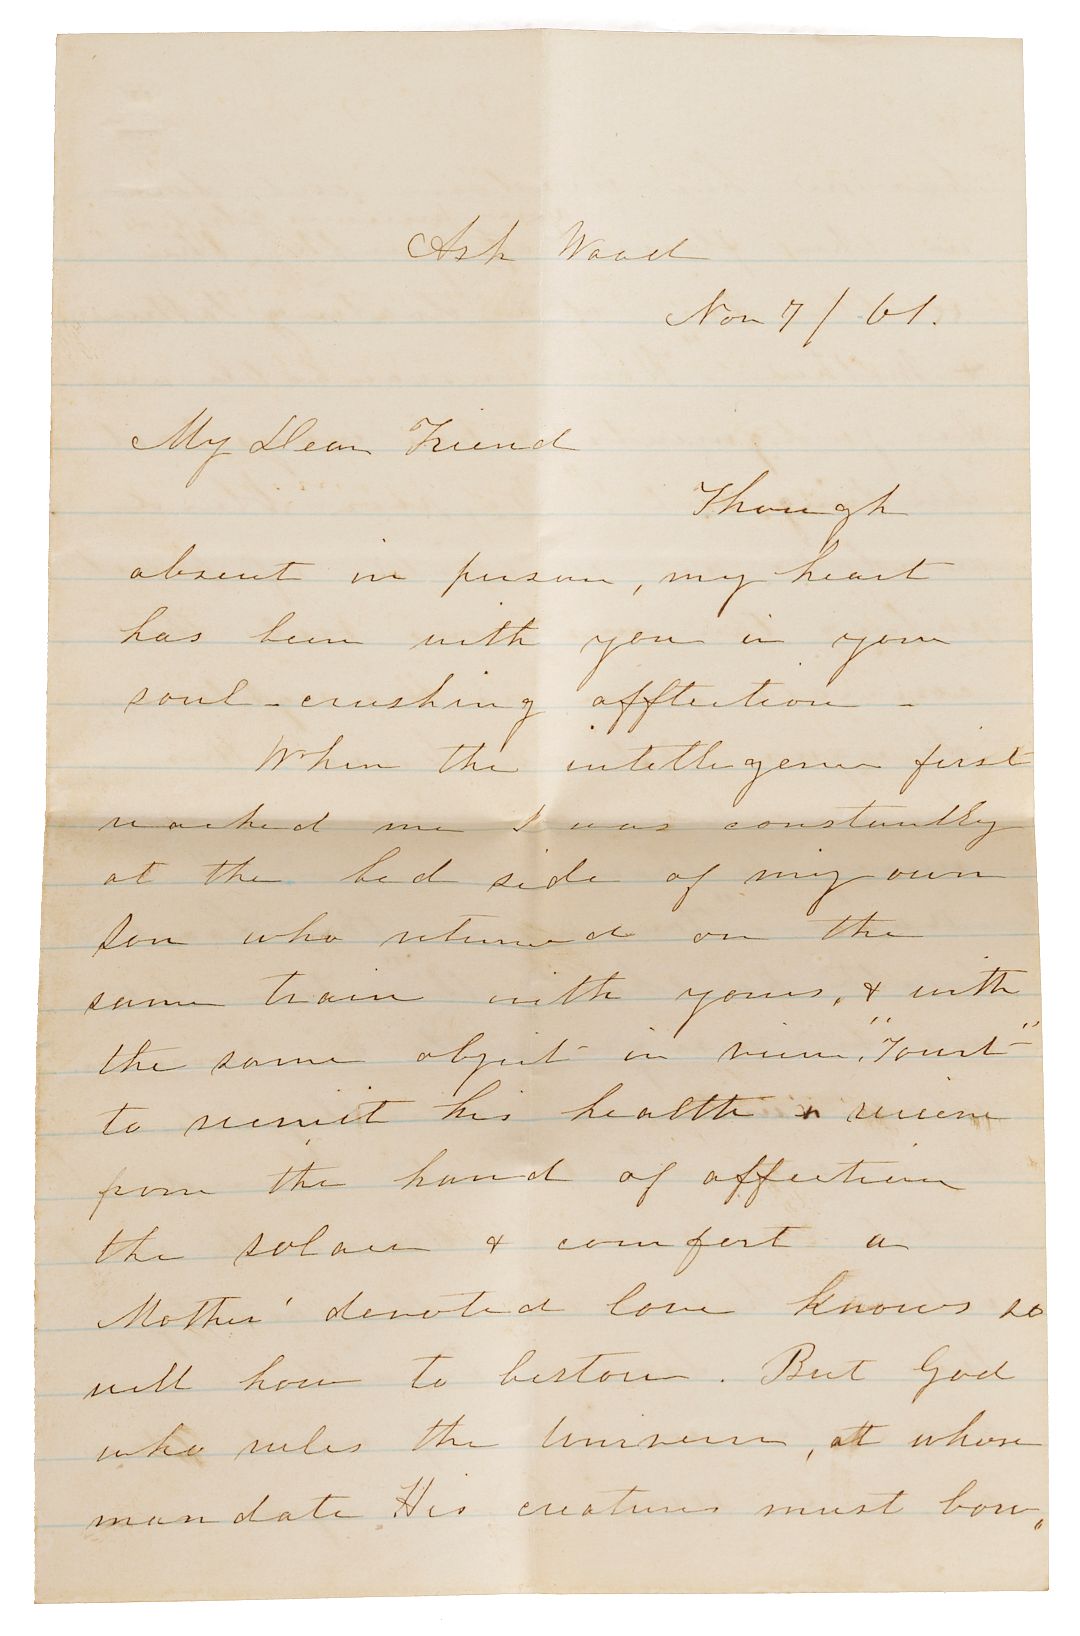 Ash Wood
Nov 7 / 61.
My Dear Friend
Though
absent in person, my heart
has been with you in your
soul-crushing affliction -
When the intelligence first
reached me I was constantly
at the bed side of my own
Son who returned on the
same train with yours, & with
the same object in view,
to recruit his health & receive
from the hand of affection
the solace & comfort a
Mother' devoted love knows so
well how to bestow. But God
who rules the Universe, at whose
mandate His creatures must bow,